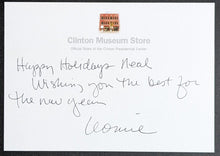 Clinton Museum Store
Official Store of the Clinton Presidential Center
Happy Holidays Neal
Wishing you the best for
the new year
Connie